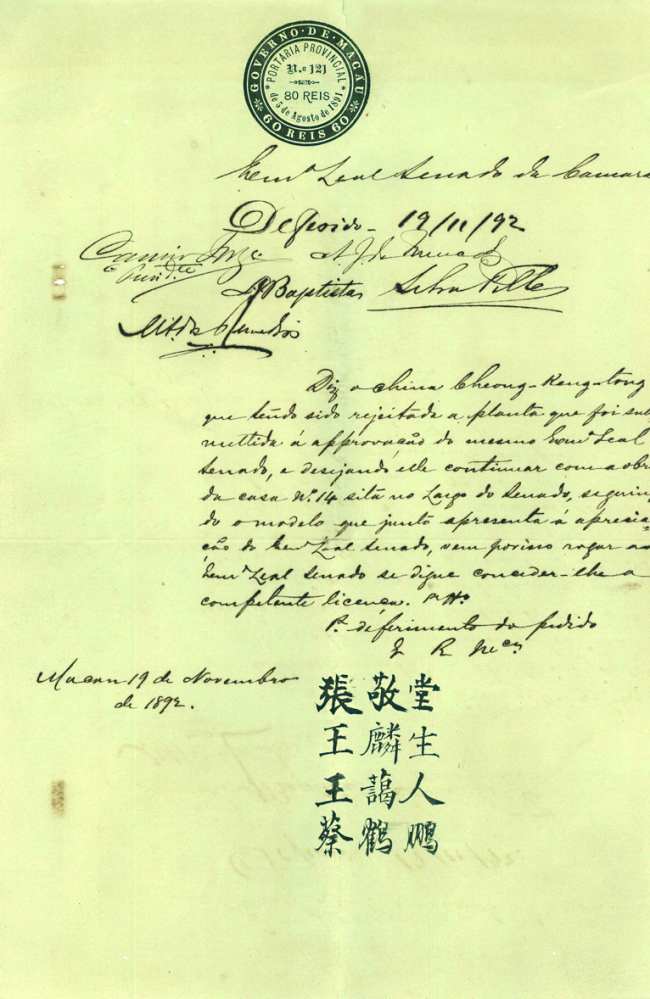 GOVERNO·DE·MACAU
PORTARIA PROVINCIAL
N.º 121
80 REIS
de 5 de Agosto de 1891
60 REIS 60
Exm.º Leal Senado da Camara
Deferido - 19/11/92
A J da
Baptista Silva Telles
Diz o china Cheong-Keng-tong
que tendo sido rejeitada a planta que foi sub
mettida á approvação do mesmo Exm.º Leal
Senado, e desejando elle continuar com a obra
da casa N.º 14 sita no Largo do Senado, seguin-
do o modelo que junto apresenta á aprecia-
ção do Exm.º Leal Senado, vem por isso rogar ao
Exm.º Leal Senado se digne conceder-lhe a
competente licença.
P. deferimento do pedido
E R M.cê
Macau 19 de Novembro
de 1892.
張敬堂
王麟生
王藹人
蔡鶴鵬